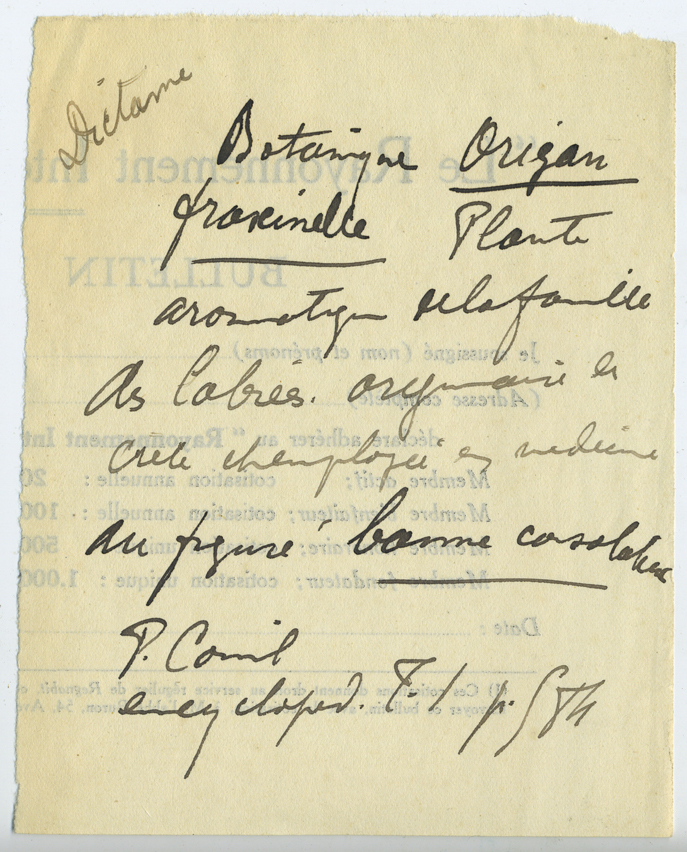 Dictame
Botanique Origan
fraxinelle Plante
aromatique de la famille
des labiés. originaire de
Crète et employée en medecine
au figuré baume consolateur
P. Comb
encycloped. T. 1 p.
"Le Rayonnement Int
BULLETIN
Je soussigné (nom et prénoms)
(Adresse complète)
déclare adhérer au "Rayonnement Int
Membre actif; cotisation annuelle : 20
Membre bienfaiteur; cotisation annuelle : 100
Membre honoraire; cotisation annuelle : 500
Membre fondateur; cotisation unique : 1.000
Date :
(1) Ces cotisations donnent droit au service régulier de Regnabit,